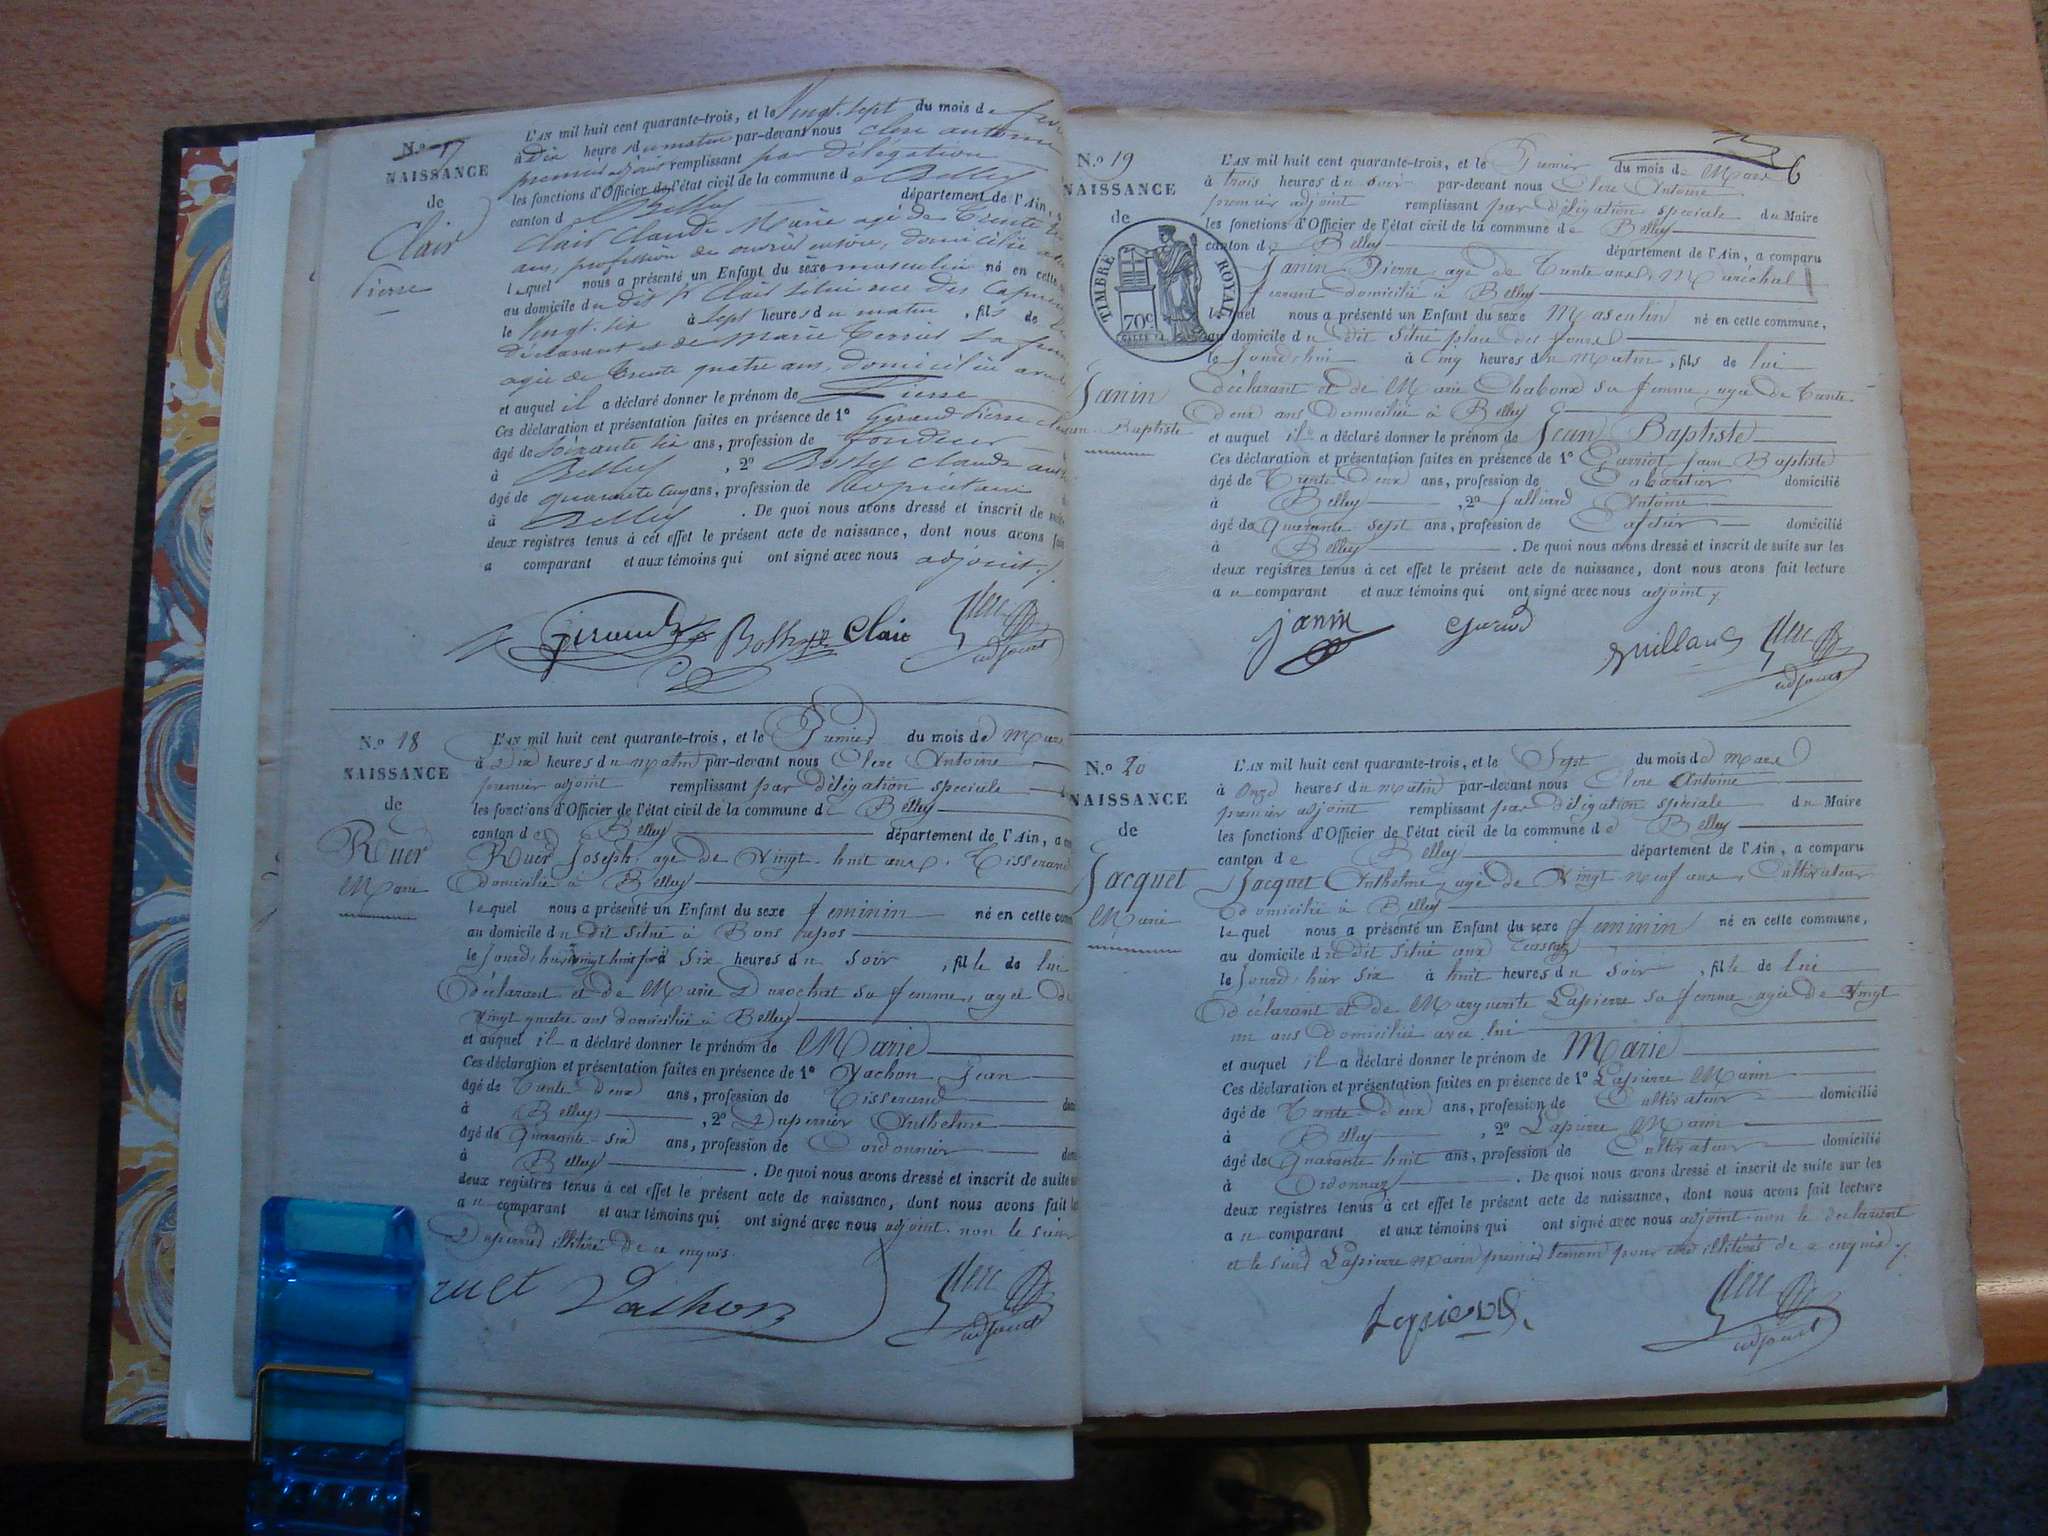 N.º 17
NAISSANCE
de
Clair
Pierre
L'AN mil huit cent quarante-trois, et le Vingt-sept du mois de
à dix heures du matin par-devant nous Clerc antoine
premier adjoint remplissant par délégation
les fonctions d'Officier de l'état civil de la commune de Belley
canton de Belley département de l'Ain,
Clair Claude Marie agé de Trente
ans, profession de domicilié
lequel nous a présenté un Enfant du sexe masculin né en cette
au domicile du dit Sr Clair situé rue des
le Vingt-six à Sept heures du matin, fils de
déclarant et de Marie sa
agée de trente quatre ans, domiciliée
et auquel il a déclaré donner le prénom de Pierre
Ces déclaration et présentation faites en présence de 1º Giraud Pierre
âgé de Soixante six ans, profession de
à Belley, 2º Claude
âgé de quarante cinq ans, profession de Propriétaire
à Belley. De quoi nous avons dressé et inscrit de suite
deux registres tenus à cet effet le présent acte de naissance, dont nous avons fait
a comparant et aux témoins qui ont signé avec nous adjoint
Giraud Clair Clerc
adjoint
N.º 18
NAISSANCE
de
Ruer
Marie
L'AN mil huit cent quarante-trois, et le Premier du mois de Mars
à Dix heures du matin par-devant nous Clerc Antoine
premier adjoint remplissant par délégation speciale
les fonctions d'Officier de l'état civil de la commune de Belley
canton de Belley département de l'Ain, a
Ruer Joseph, agé de Vingt-huit ans, Tisserand
domicilié à Belley
lequel nous a présenté un Enfant du sexe feminin né en cette
au domicile du dit situé à Bons repos
le jourd'hier vingt huit à Six heures du soir, fille de lui
déclarant et de Marie Durochat sa femme, agée de
Vingt quatre ans domiciliée à Belley
et auquel il a déclaré donner le prénom de Marie
Ces déclaration et présentation faites en présence de 1º Vachon Jean
âgé de Trente-deux ans, profession de Tisserand
à Belley, 2º Duperrier Anthelme
âgé de Quarante-six ans, profession de Cordonnier
à Belley. De quoi nous avons dressé et inscrit de suite
deux registres tenus à cet effet le présent acte de naissance, dont nous avons fait
a u comparant et aux témoins qui ont signé avec nous adjoint non le sieur
illitéré de ce enquis.
Vachon Clerc
adjoint
6
N.º 19
NAISSANCE
de
TIMBRE ROYAL
70c
Janin
Jean Baptiste
L'AN mil huit cent quarante-trois, et le Premier du mois de Mars
à trois heures du soir par-devant nous Clerc Antoine
premier adjoint remplissant par délégation speciale du Maire
les fonctions d'Officier de l'état civil de la commune de Belley
canton de Belley département de l'Ain, a comparu
Janin Pierre, agé de Trente ans, Maréchal
ferrant domicilié à Belley
lequel nous a présenté un Enfant du sexe Masculin né en cette commune,
au domicile du dit situé place des fours
le jourdhui à Cinq heures du Matin, fils de lui
déclarant et de Marie Chaboux sa femme, agée de Trente
deux ans domiciliée à Belley
et auquel il a déclaré donner le prénom de Jean Baptiste
Ces déclaration et présentation faites en présence de 1º Jean Baptiste
âgé de Trente deux ans, profession de Cabaretier domicilié
à Belley, 2º Antoine
âgé de Quarante sept ans, profession de Cafetier domicilié
à Belley. De quoi nous avons dressé et inscrit de suite sur les
deux registres tenus à cet effet le présent acte de naissance, dont nous avons fait lecture
a u comparant et aux témoins qui ont signé avec nous adjoint
janin Clerc
adjoint
N.º 20
NAISSANCE
de
Jacquet
Marie
L'AN mil huit cent quarante-trois, et le Sept du mois de Mars
à Onze heures du matin par-devant nous Clerc Antoine
premier adjoint remplissant par délégation spéciale du Maire
les fonctions d'Officier de l'état civil de la commune de Belley
canton de Belley département de l'Ain, a comparu
Jacquet Anthelme, agé de Vingt-neuf ans, Cultivateur
domicilié à Belley
lequel nous a présenté un Enfant du sexe feminin né en cette commune,
au domicile du dit situé aux
le Jourd'hier six à huit heures du soir, fille de lui
déclarant et de Marguerite Lapierre sa femme agée de Vingt
un ans domiciliée avec lui
et auquel il a déclaré donner le prénom de Marie
Ces déclaration et présentation faites en présence de 1º Lapierre Marin
âgé de Trente-deux ans, profession de Cultivateur domicilié
à Belley, 2º Lapierre Marin
âgé de Quarante huit ans, profession de Cultivateur domicilié
à Ordonnaz. De quoi nous avons dressé et inscrit de suite sur les
deux registres tenus à cet effet le présent acte de naissance, dont nous avons fait lecture
a u comparant et aux témoins qui ont signé avec nous adjoint non le declarant
et le sieur Lapierre Marin premier temoin pour être illitérés de ce enquis
Clerc
adjoint